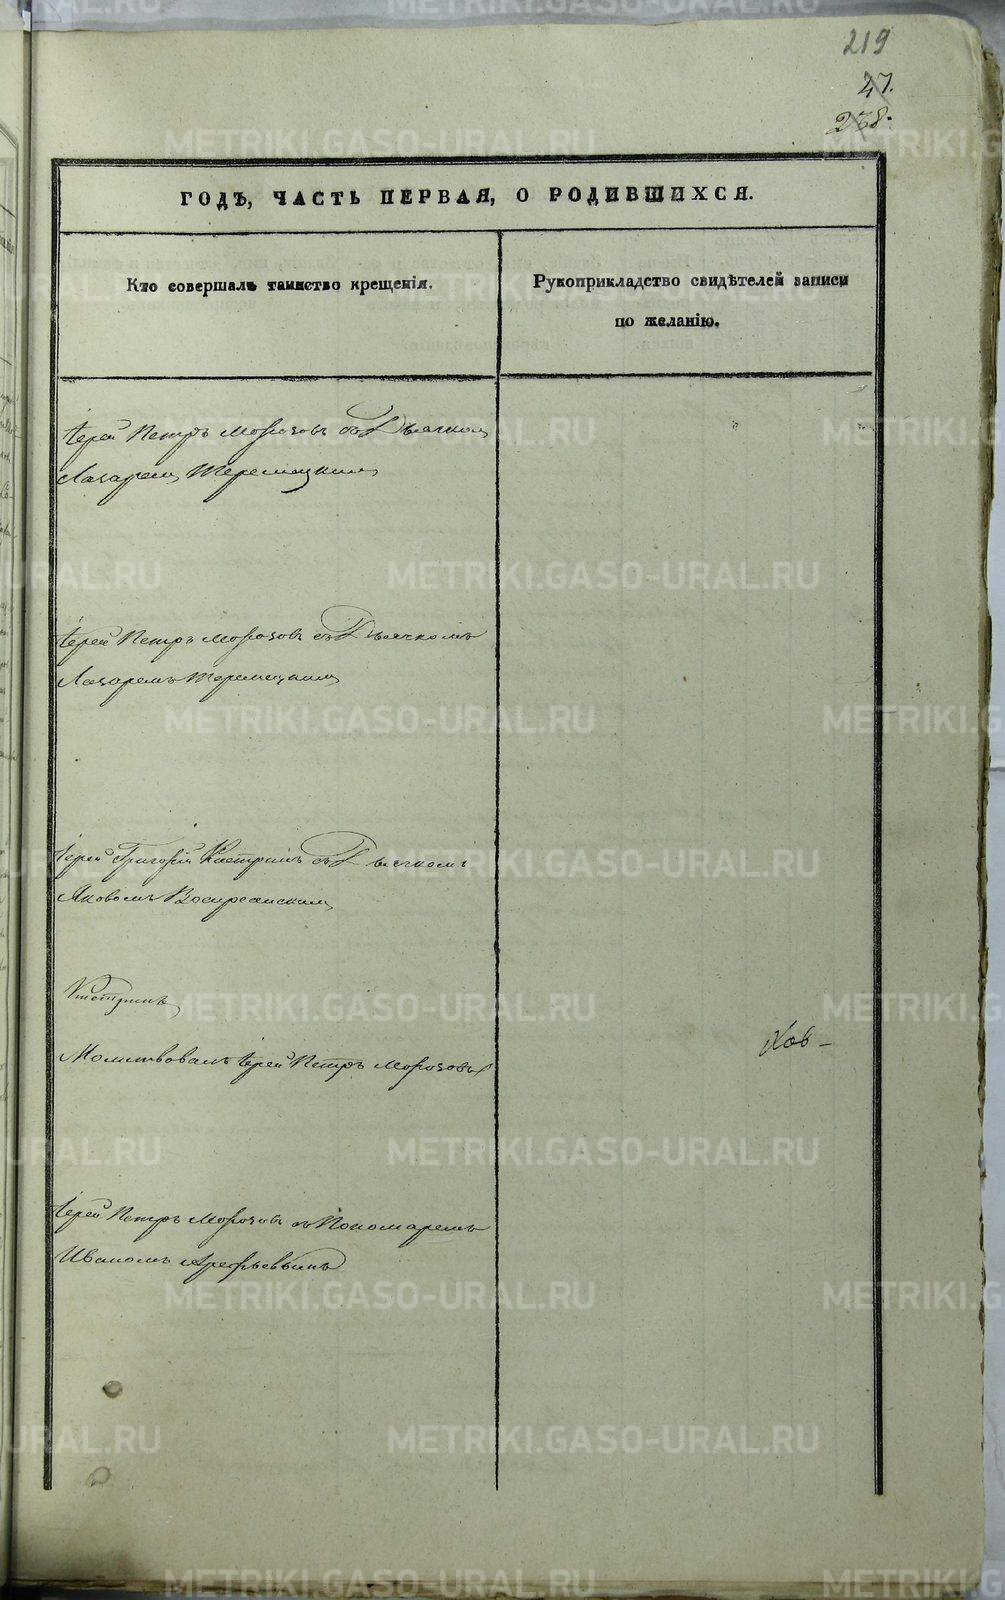 219
47.
238.
ГОДЪ, ЧАСТЬ ПЕРВАЯ, О РОДИВШИХСЯ.
Кто совершалъ таинство крещенія.
Рукоприкладство свидѣтелей записи
по желанію.
Іерей Петръ Морозовъ съ Дьячком
Лазарем
Іерей Петръ Морозовъ съ Дьячкомъ
Лазаремъ
Іерей Григорій Кастринъ съ Дьячкомъ
Яковомъ Воскресенским
Молитвовалъ Іерей Петръ Морозовъ
Іерей Петръ Морозовъ съ Пономаремъ
Иваномъ Арефьевымъ
METRIKI.GASO-URAL.RU